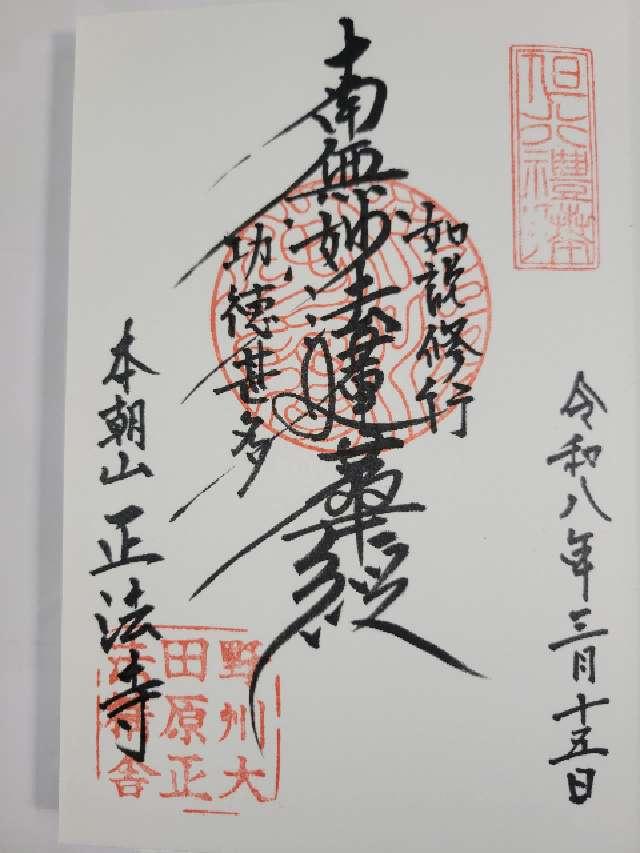 令和八年三月十五日
如説修行
南無妙法蓮華経
功徳甚多
本朝山 正法寺
野州大
田原正
法精舎